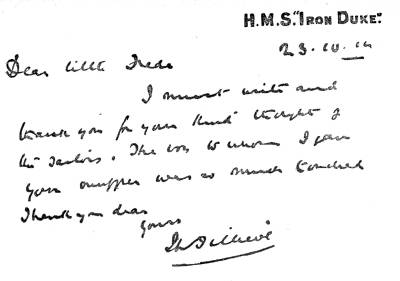 H.M.S. "IRON DUKE".
23.10.14
Dear little Freda
I must write and
thank you for your kind thought of
the sailors. The boy to whom I gave
your muffler was so much touched
Thank you dear
Yours